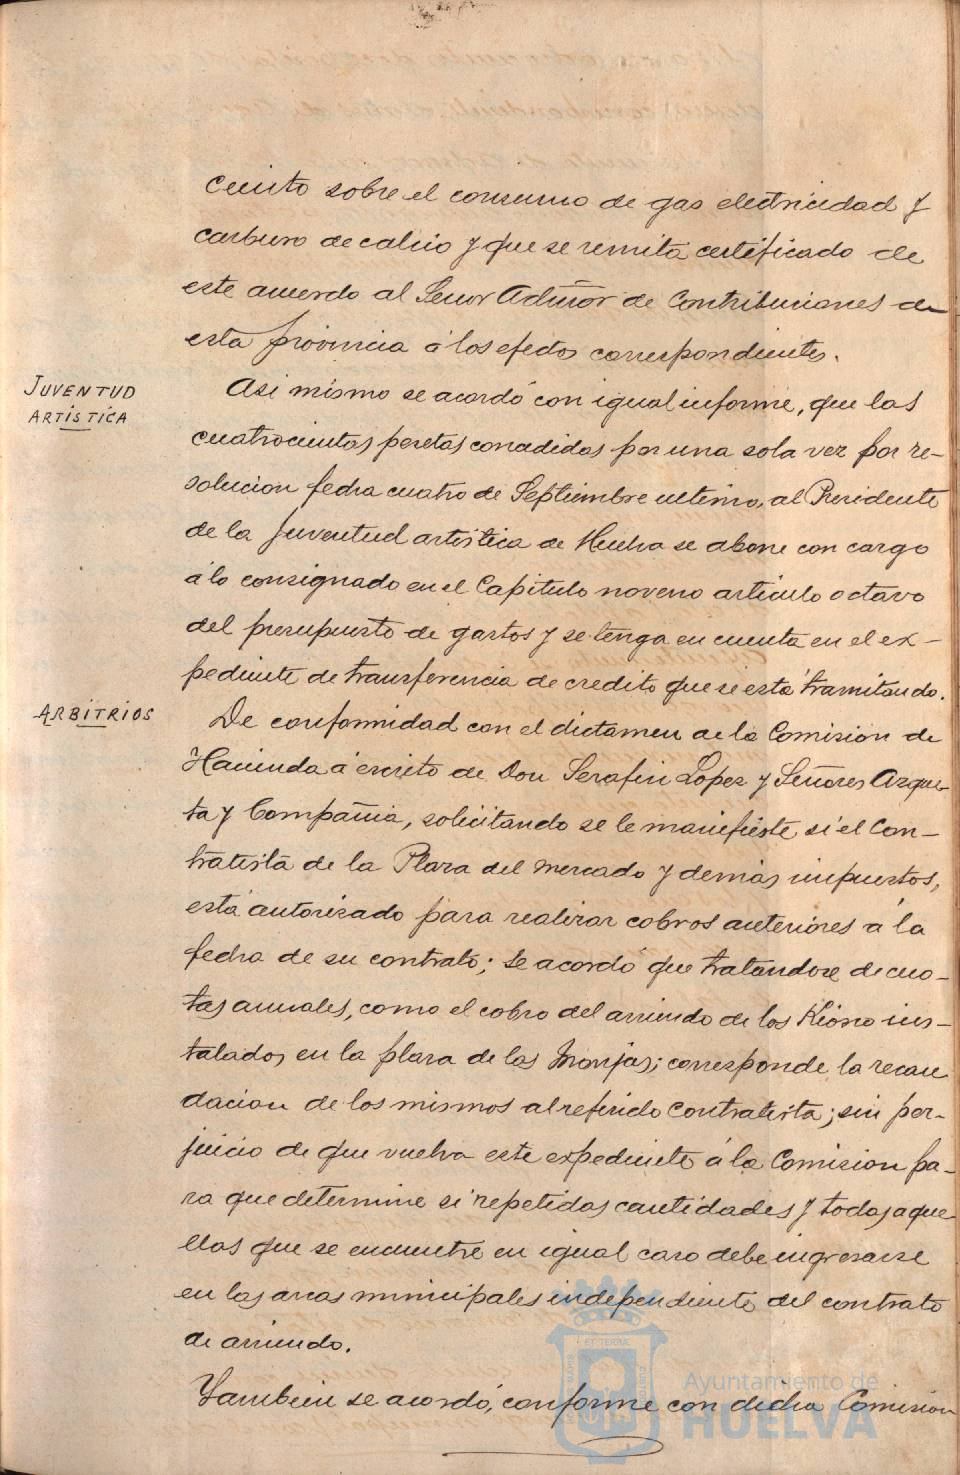 ciento sobre el consumo de gas electricidad y
carburo de calcio y que se remita certificado de
este acuerdo al Señor Admor de Contribuciones de
esta provincia á los efectos correspondientes.
JUVENTUD
ARTISTICA
Asi mismo se acordó con igual informe, que las
cuatrocientas pesetas concedidas por una sola vez por re-
solucion fecha cuatro de Septiembre ultimo, al Presidente
de la Juventud artistica de Huelva se abone con cargo
á lo consignado en el Capitulo noveno articulo octavo
del presupuesto de gastos y se tenga en cuenta en el ex-
pediente de transferencia de credito que se está tramitando.
ARBITRIOS
De conformidad con el dictamen de la Comision de
Hacienda á escrito de Don Serafin Lopez y Señores Azque-
ta y Compañia, solicitando se le manifieste si el Con-
tratista de la Plaza del mercado y demás impuestos,
está autorizado para realizar cobros anteriores á la
fecha de su contrato; se acordó que tratandose de cuo-
tas anuales, como el cobro del arriendo de los Kiosco ins-
talados en la plaza de las Monjas; corresponde la recau
dacion de los mismos al referido contratista; sin per-
juicio de que vuelva este expediente á la Comision pa-
ra que determine si repetidas cantidades y todas aque
llas que se encuentre en igual caso debe ingresarse
en las arcas municipales independiente del contrato
de arriendo.
Tambien se acordó, conforme con dicha Comision
Ayuntamiento de
HUELVA